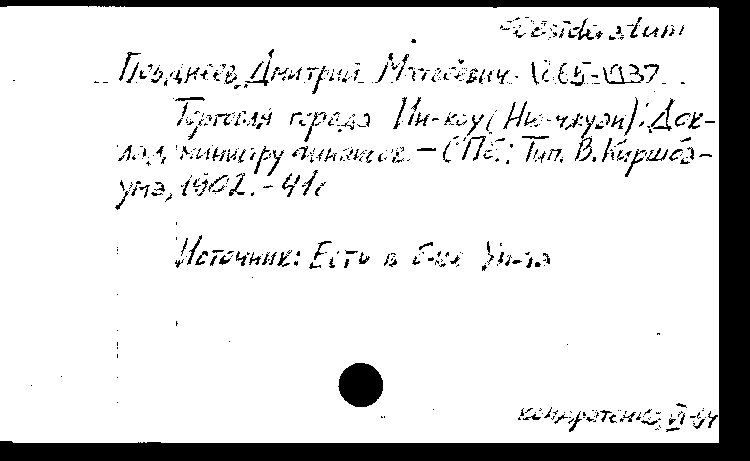 Desideratum
Позднеев, Дмитрий Матвеевич. 1865-1937
Торговля города Ин-коу (Ню-чжуан): Док-
лад министру финансов. - СПб.: Тип. В. Киршба-
ума, 1902. - 41с
Источник: Есть в б-ке Ун-та
Кондратенко, VI-84